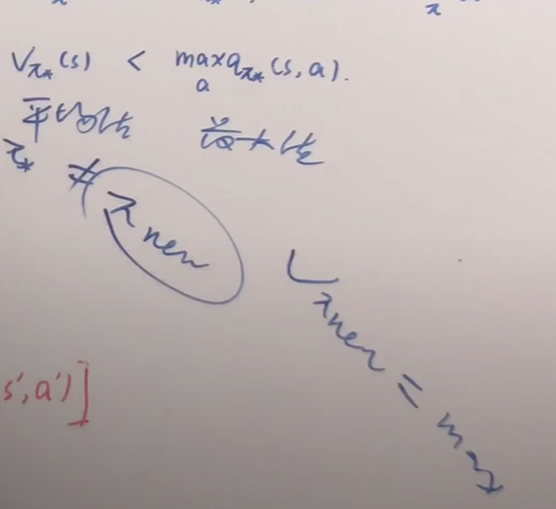 V_π*(s) < max_a q_π*(s,a).
平均化 最大化
π* ≠ π new
V_π new = max
s',a')]